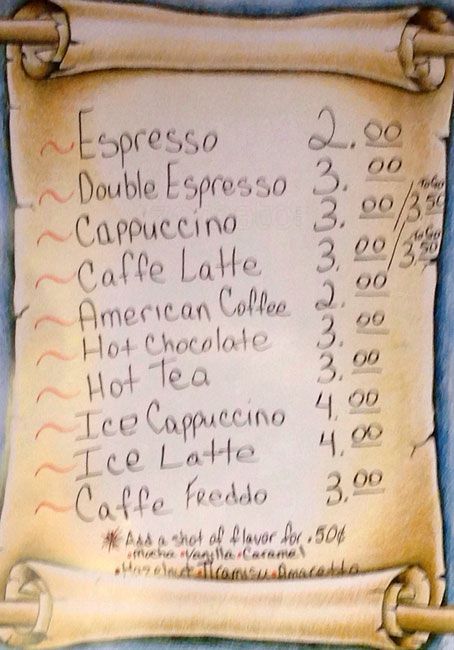 ~ Espresso 2.00
~ Double Espresso 3.00
~ Cappuccino 3.00 / To Go 3.50
~ Caffe Latte 3.00 / To Go 3.50
~ American Coffee 2.00
~ Hot Chocolate 3.00
~ Hot Tea 3.00
~ Ice Cappuccino 4.00
~ Ice Latte 4.00
~ Caffe Freddo 3.00
* Add a shot of flavor for .50¢
• Mocha • Vanilla • Caramel
• Hazelnut • Tiramisu • Amaretto